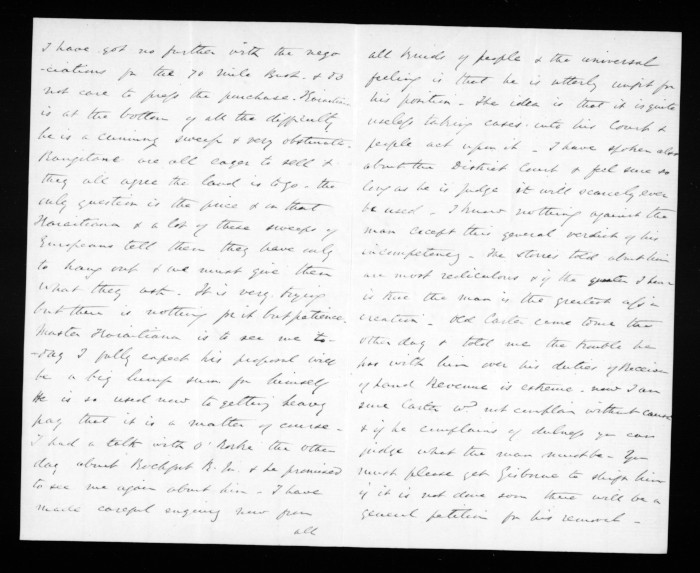 I have got no further with the nego
-ciations for the 70 mile Bush. & do
not care to press the purchase. Karaitiana
is at the bottom of all the difficulty
he is a cunning sweep & very obstinate.
Rangitane are all eager to sell &
they all agree the land is to go - the
only question is the price & on that
Karaitiana & a lot of these sweeps of
Europeans tell them they have only
to hang out & we must give them
what they ask. It is very trying
but there is nothing for it but patience.
Master Karaitiana is to see me to-
-day I fully expect his proposal will
be a big lump sum for himself
He is so used now to getting heavy
pay that it is a matter of course -
I had a talk with O'Rorke the other
day about Rochfort R.M. & he promised
to see me again about him - I have
made careful enquiry now from
all
all kinds of people & the universal
feeling is that he is utterly unfit for
his position - The idea is that it is quite
useless taking cases into his Court &
people act upon it - I have spoken also
about the District Court & feel sure so
long as he is judge it will scarcely ever
be used - I know nothing against the
man except this general verdict of his
incompetency - The stories told about him
are most rediculous & if the I hear
is true the man is the greatest ass in
creation - Old Carter came to me the
other day & told me the trouble he
has with him over his duties of Receiver
of Land Revenue is extreme - now I am
sure Carter wd not complain without cause
& if he complains of dulness you can
judge what the man must be - You
must please get Gisborne to him
if it is not done soon there will be a
general petition for his removal -